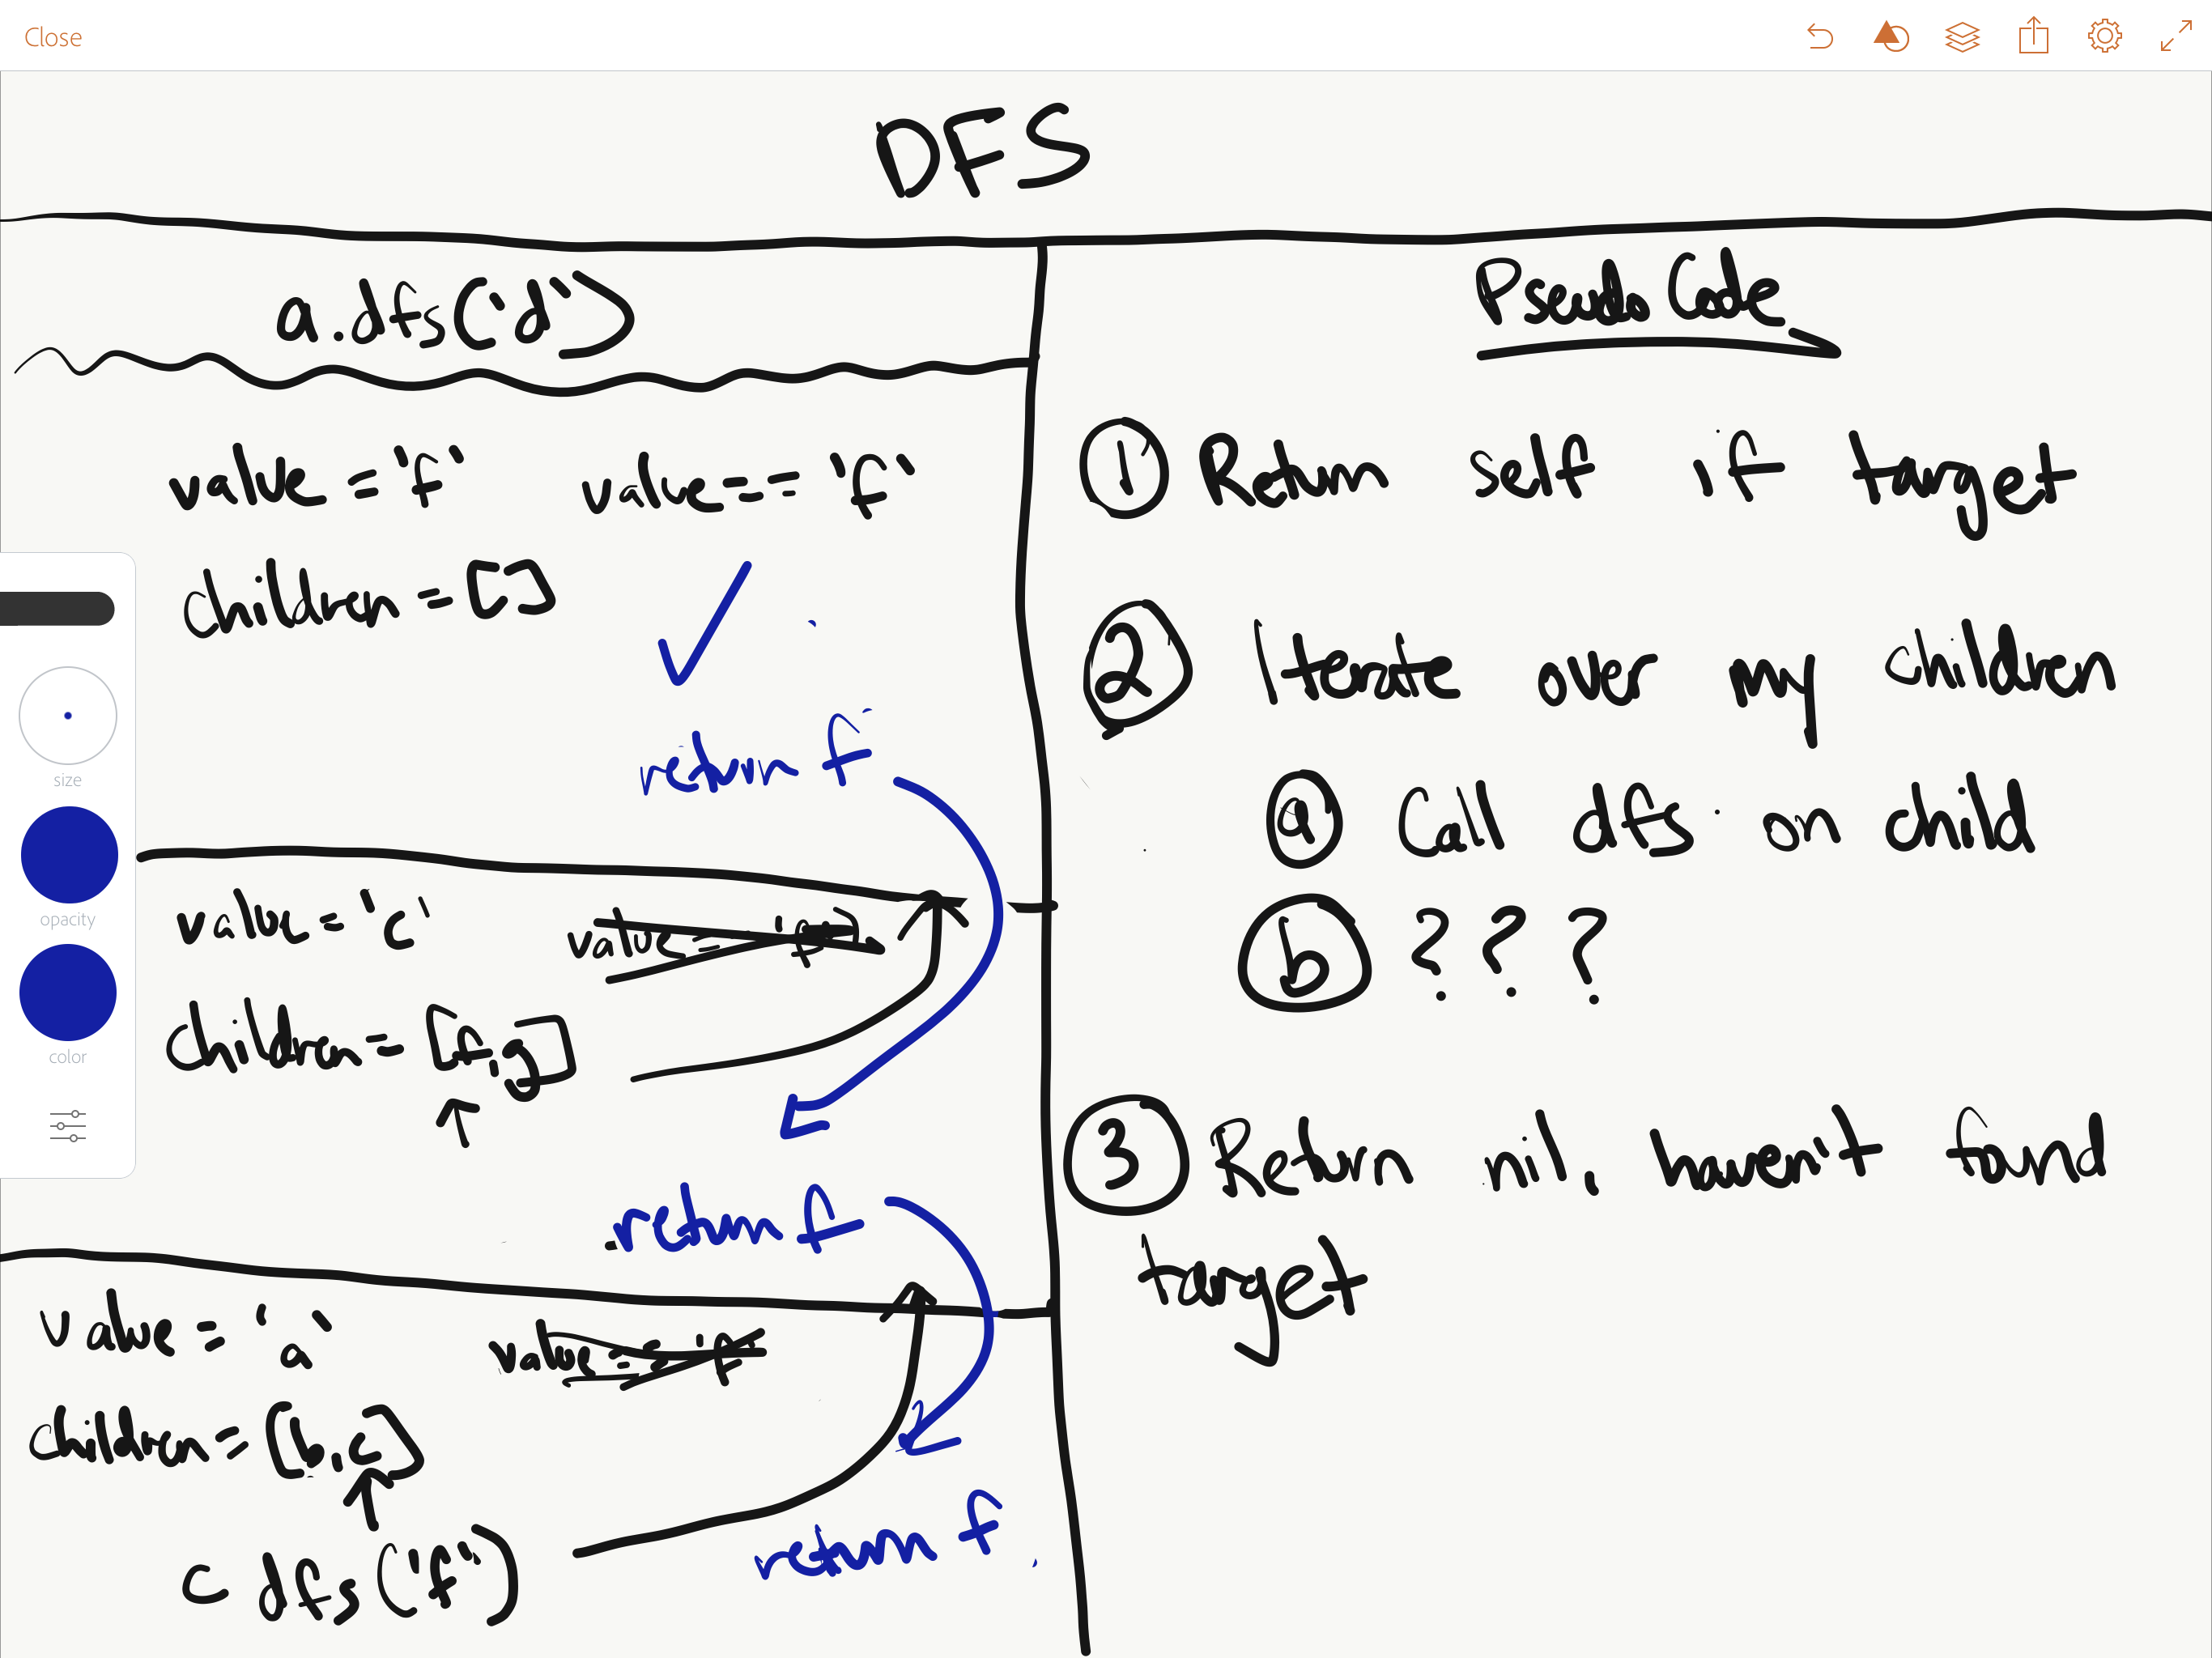 Close
DFS
a.dfs('d')
value = 'f' value == 'f'
children = []
return f
value = 'c' value == 'f'
children = [f,g]
return f
value = 'a' value == 'f'
children = [b,c]
c dfs('f')
return f
size
opacity
color
Pseudo Code
1 Return self if target
2 Iterate over my children
a Call dfs on child
b ? ? ?
3 Return nil, haven't found
target